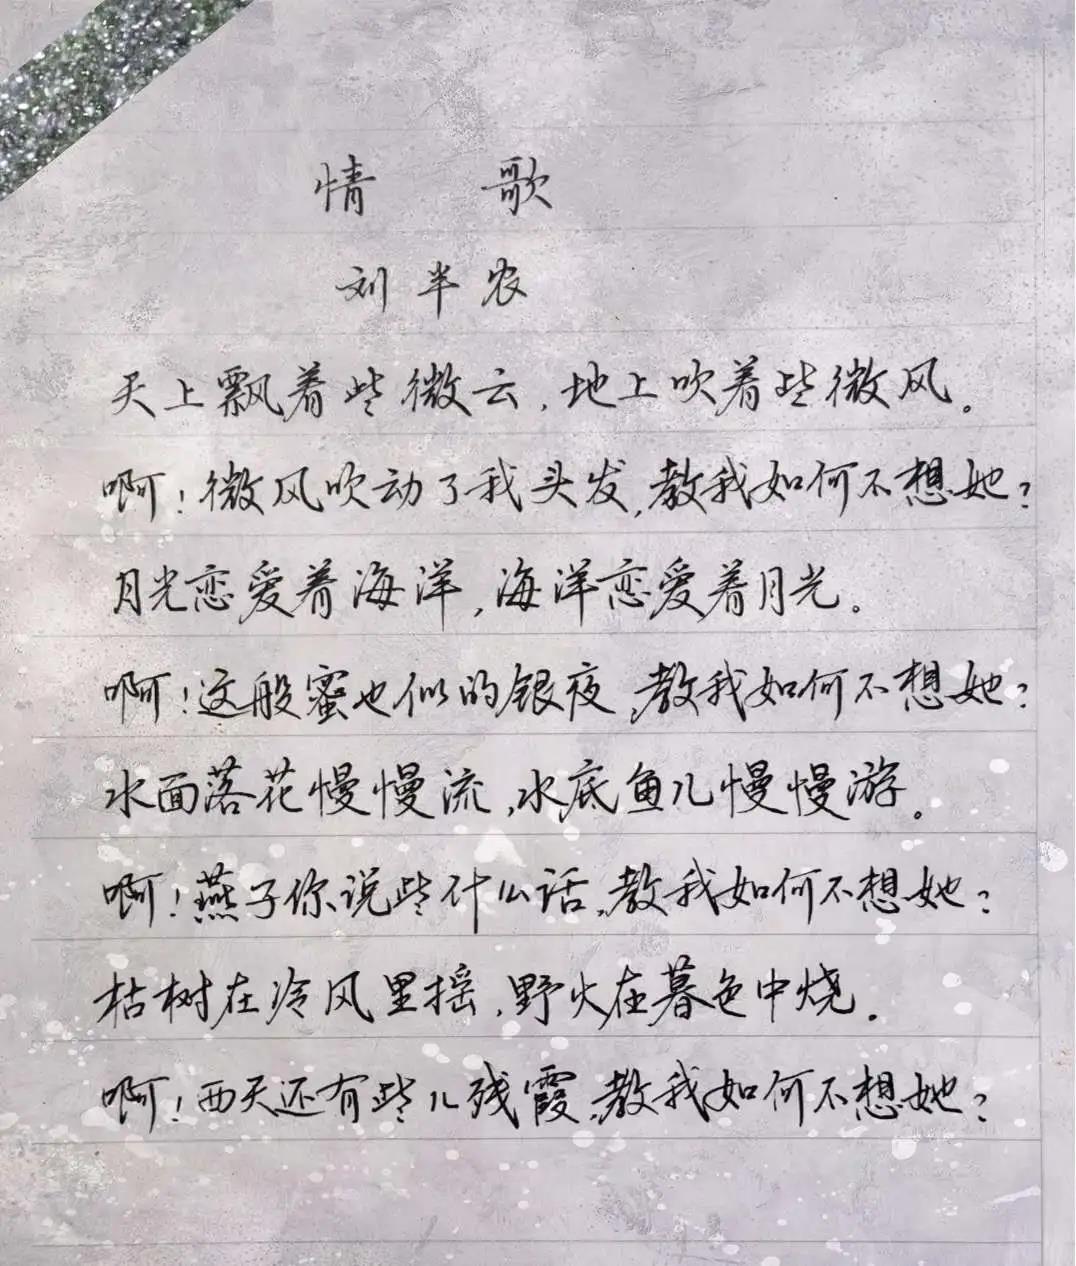 情 歌
刘半农
天上飘着些微云，地上吹着些微风。
啊！微风吹动了我头发，教我如何不想她？
月光恋爱着海洋，海洋恋爱着月光。
啊！这般蜜也似的银夜，教我如何不想她？
水面落花慢慢流，水底鱼儿慢慢游。
啊！燕子你说些什么话，教我如何不想她？
枯树在冷风里摇，野火在暮色中烧。
啊！西天还有些儿残霞，教我如何不想她？